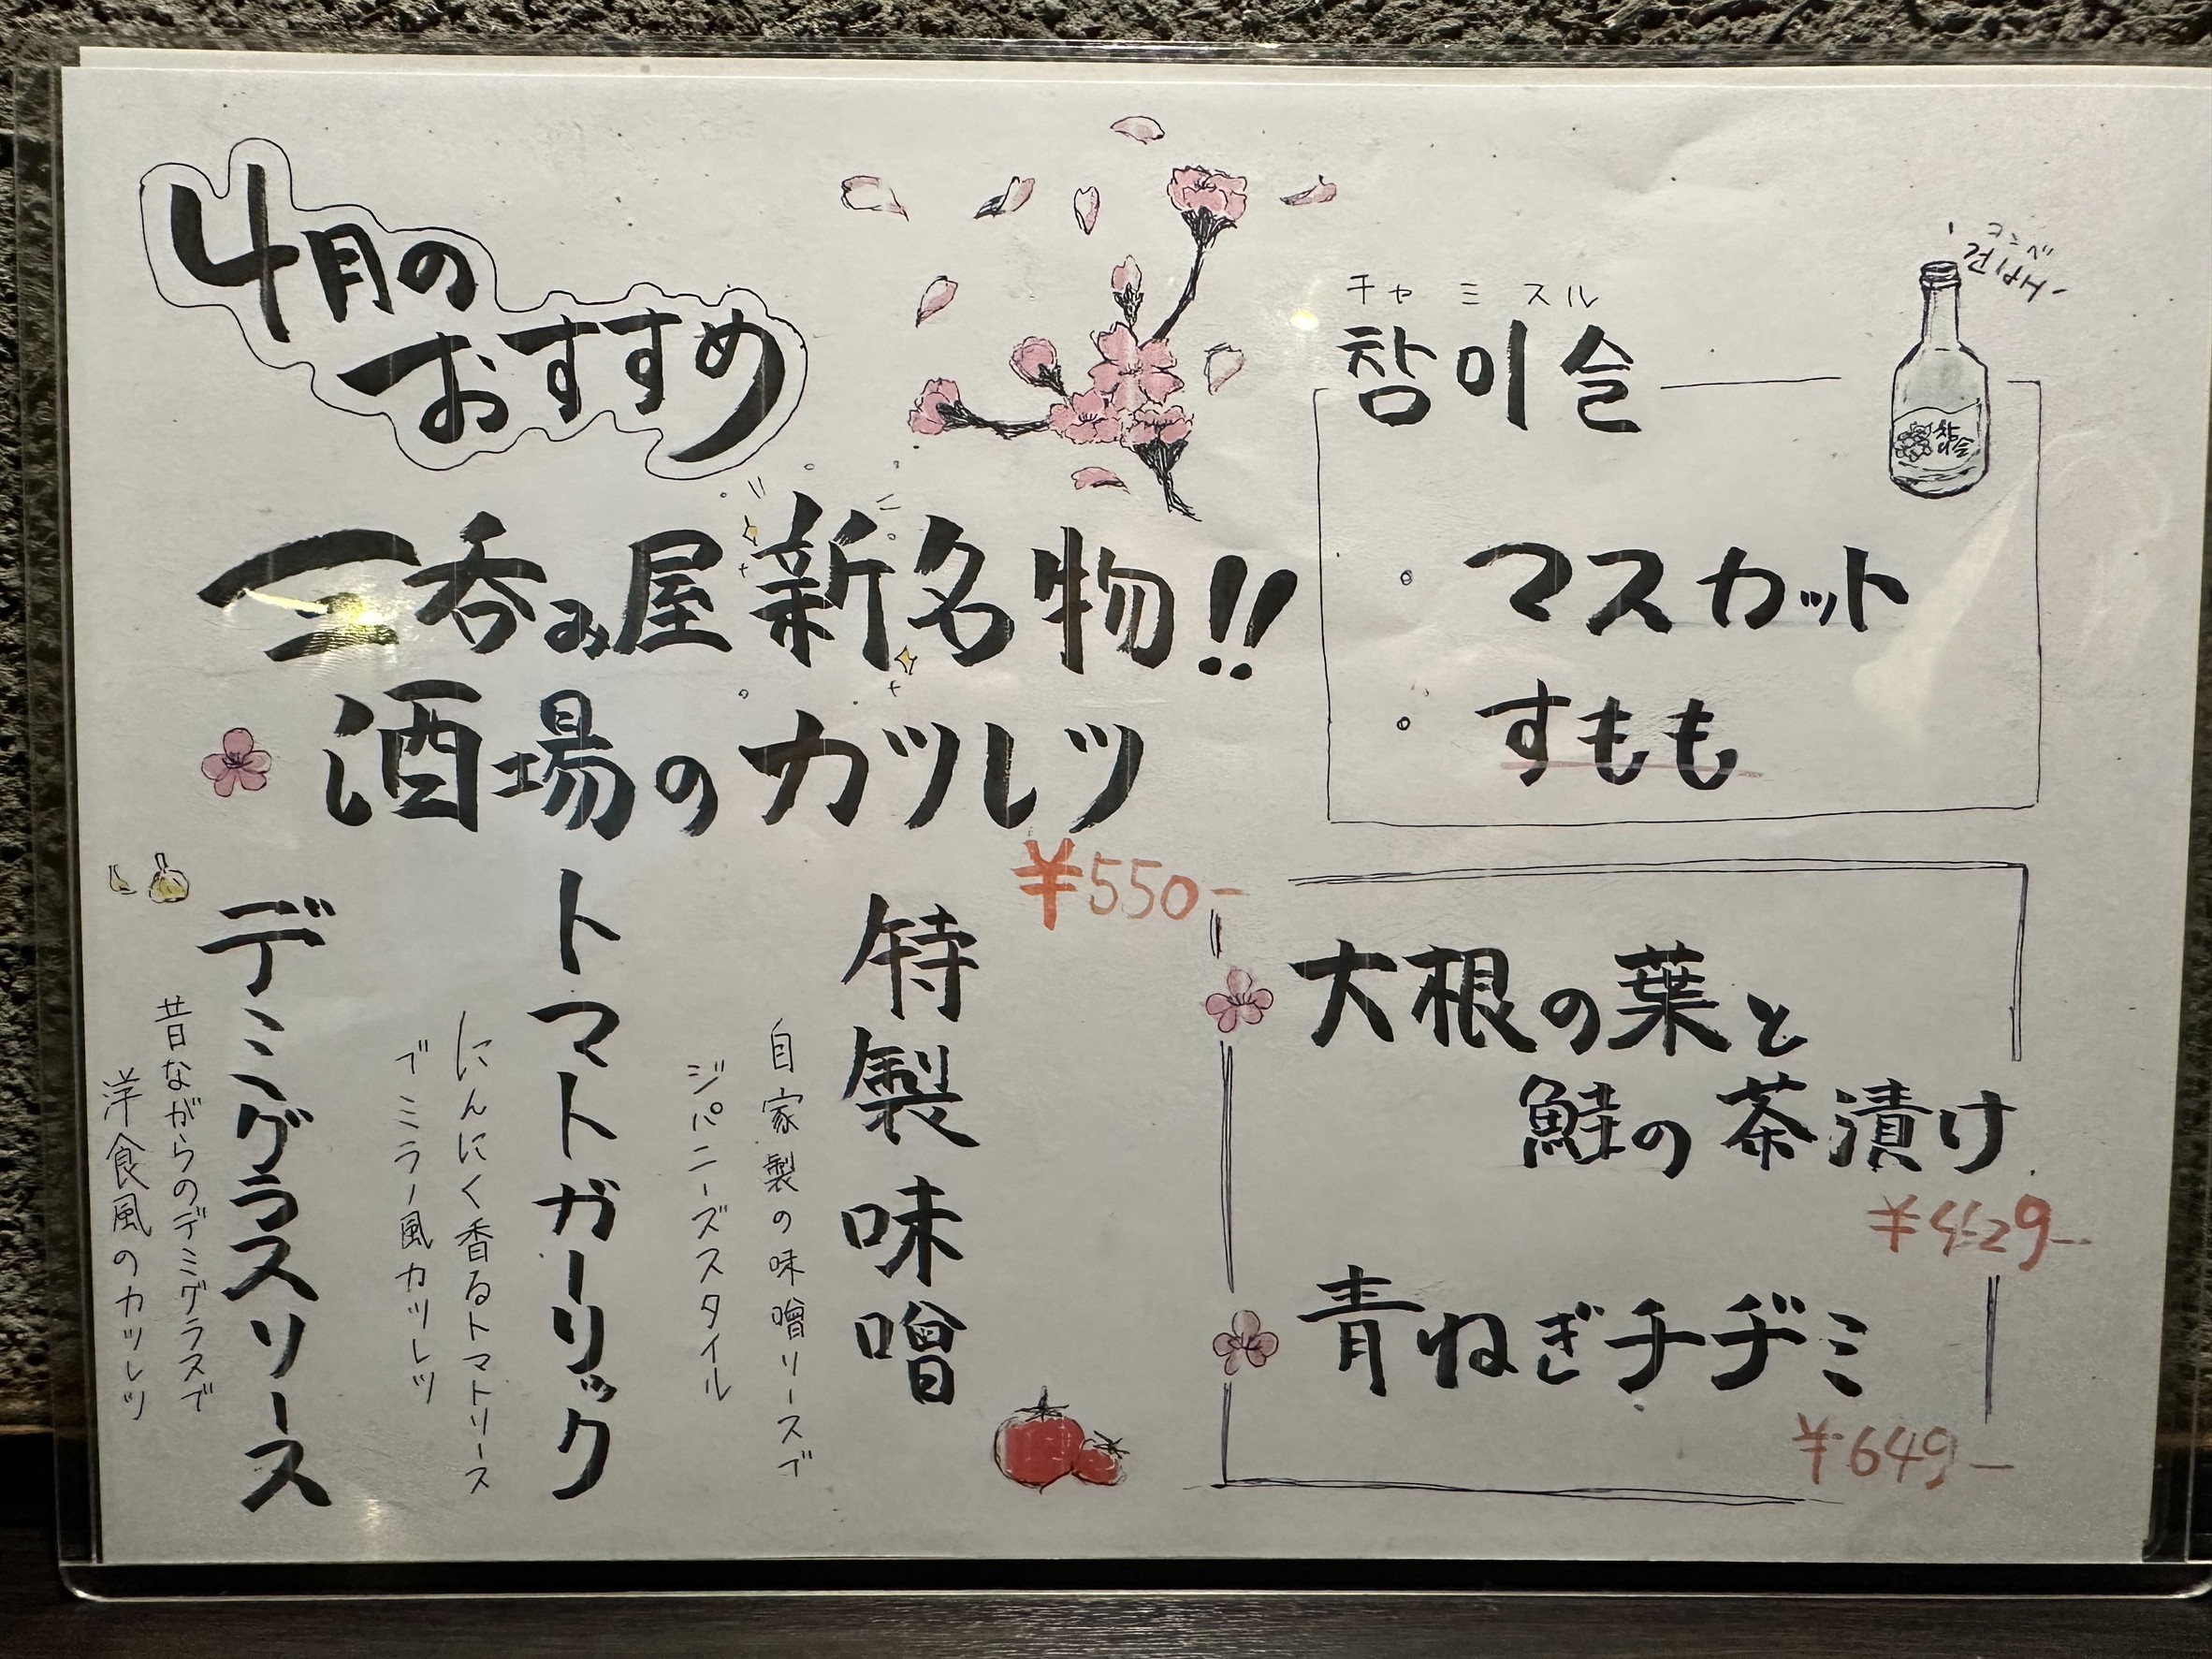 4月の
おすすめ
呑み屋新名物!!
酒場のカツレツ
¥550-
特製味噌
自家製の味噌ソースで
ジパニーズスタイル
トマトガーリック
にんにく香るトマトソース
でミラノ風カツレツ
デミグラスソース
昔ながらのデミグラスで
洋食風のカツレツ
チャミスル
참이슬
참이슬
・マスカット
・すもも
大根の葉と
鮭の茶漬け
青ねぎチヂミ
¥649-